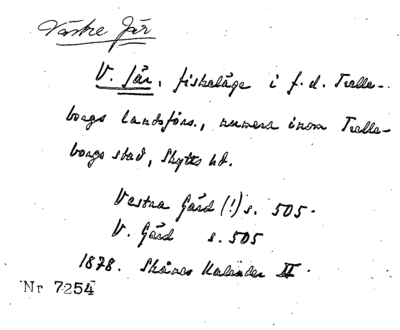 Västre Jär
V. Jär, fiskeläge i f. d. Trelle-
borgs landsförs., numera inom Trelle-
borgs stad, Skytts hd.
Vestra Gärd (!) s. 505.
V. Gärd s. 505
1878. Skånes Kalender II.
Nr 7254